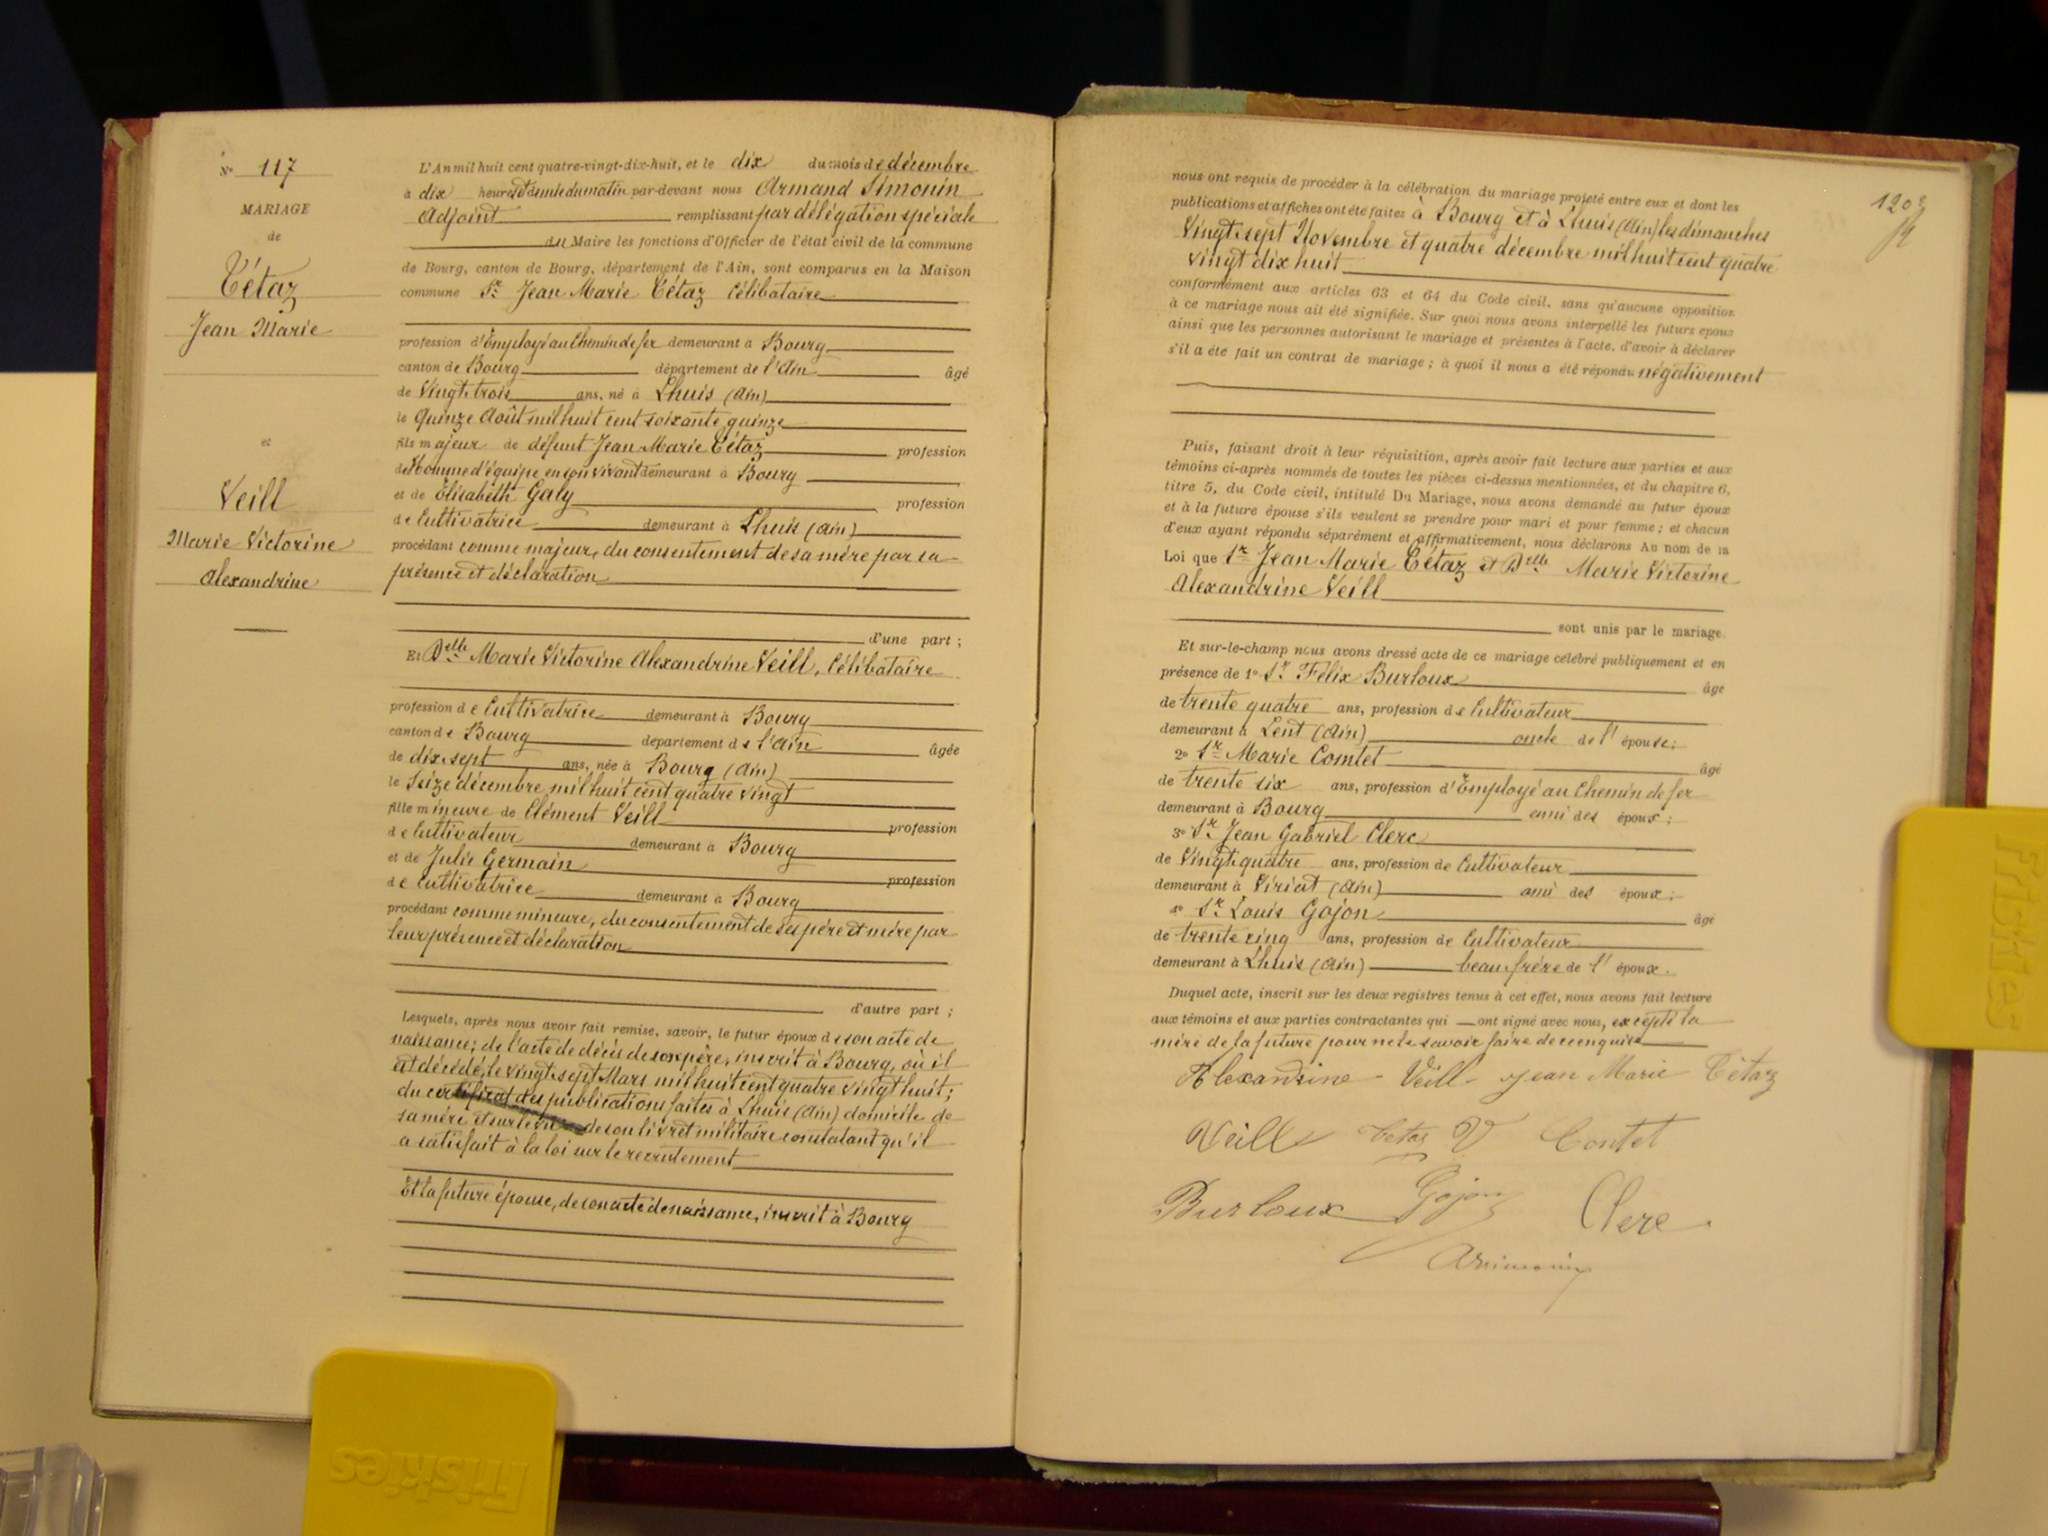 N° 117
MARIAGE
de
Tétaz
Jean Marie
et
Veill
Marie Victorine
Alexandrine
L'An mil huit cent quatre-vingt-dix-huit, et le dix du mois de décembre
à dix heures et demie du matin par-devant nous Armand Simonin
Adjoint remplissant par délégation spéciale
du Maire les fonctions d'Officier de l'état civil de la commune
de Bourg, canton de Bourg, département de l'Ain, sont comparus en la Maison
commune Sr Jean Marie Tétaz célibataire
profession d'Employé au Chemin de fer demeurant à Bourg
canton de Bourg département de l'Ain âgé
de Vingt-trois ans, né à Lhuis (Ain)
le Quinze Août mil huit cent soixante quinze
fils majeur de défunt Jean Marie Tétaz profession
d'Homme d'équipe en son vivant demeurant à Bourg
et de Elisabeth Galy profession
de Cultivatrice demeurant à Lhuis (Ain)
procédant comme majeur, du consentement de sa mère par sa
présence et déclaration
d'une part ;
Et Delle Marie Victorine Alexandrine Veill, Célibataire
profession de Cultivatrice demeurant à Bourg
canton de Bourg département de l'Ain âgée
de dix sept ans, née à Bourg (Ain)
le Seize décembre mil huit cent quatre vingt
fille mineure de Clément Veill profession
de Cultivateur demeurant à Bourg
et de Julie Germain profession
de Cultivatrice demeurant à Bourg
procédant comme mineure, du consentement de ses père et mère par
leur présence et déclaration
d'autre part ;
Lesquels, après nous avoir fait remise, savoir, le futur époux de son acte de
naissance; de l'acte de décès de son père, inscrit à Bourg, où il
est décédé, le vingt sept Mars mil huit cent quatre vingt huit;
du certificat des publications faites à Lhuis (Ain) domicile de
sa mère et sur le vu de son livret militaire constatant qu'il
a satisfait à la loi sur le recrutement
Et la future épouse, de son acte de naissance, inscrit à Bourg
120
nous ont requis de procéder à la célébration du mariage projeté entre eux et dont les
publications et affiches ont été faites à Bourg et à Lhuis (Ain) les dimanches
Vingt-sept Novembre et quatre décembre mil huit cent quatre
vingt dix huit
conformément aux articles 63 et 64 du Code civil, sans qu'aucune opposition
à ce mariage nous ait été signifiée. Sur quoi nous avons interpellé les futurs époux
ainsi que les personnes autorisant le mariage et présentes à l'acte, d'avoir à déclarer
s'il a été fait un contrat de mariage ; à quoi il nous a été répondu négativement
Puis, faisant droit à leur réquisition, après avoir fait lecture aux parties et aux
témoins ci-après nommés de toutes les pièces ci-dessus mentionnées, et du chapitre 6,
titre 5, du Code civil, intitulé Du Mariage, nous avons demandé au futur époux
et à la future épouse s'ils veulent se prendre pour mari et pour femme ; et chacun
d'eux ayant répondu séparément et affirmativement, nous déclarons Au nom de la
Loi que Sr Jean Marie Tétaz et Delle Marie Victorine
Alexandrine Veill
sont unis par le mariage.
Et sur-le-champ nous avons dressé acte de ce mariage célébré publiquement et en
présence de 1° Sr Félix Burloux âgé
de trente quatre ans, profession de Cultivateur
demeurant à Lent (Ain) oncle de l'épouse ;
2° Sr Marie Comtet âgé
de trente six ans, profession d'Employé au Chemin de fer
demeurant à Bourg ami des époux ;
3° Sr Jean Gabriel Clerc
de Vingt-quatre ans, profession de Cultivateur
demeurant à Viriat (Ain) ami des époux ;
4° Sr Louis Gojon âgé
de trente cinq ans, profession de Cultivateur
demeurant à Lhuis (Ain) beau-frère de l'époux.
Duquel acte, inscrit sur les deux registres tenus à cet effet, nous avons fait lecture
aux témoins et aux parties contractantes qui ont signé avec nous, excepté la
mère de la future pour ne le savoir faire de ce enquise
Alexandrine Veill Jean Marie Tétaz
Veill Tetaz V Contet
Burloux Gojon Clerc
Friskies
Friskies